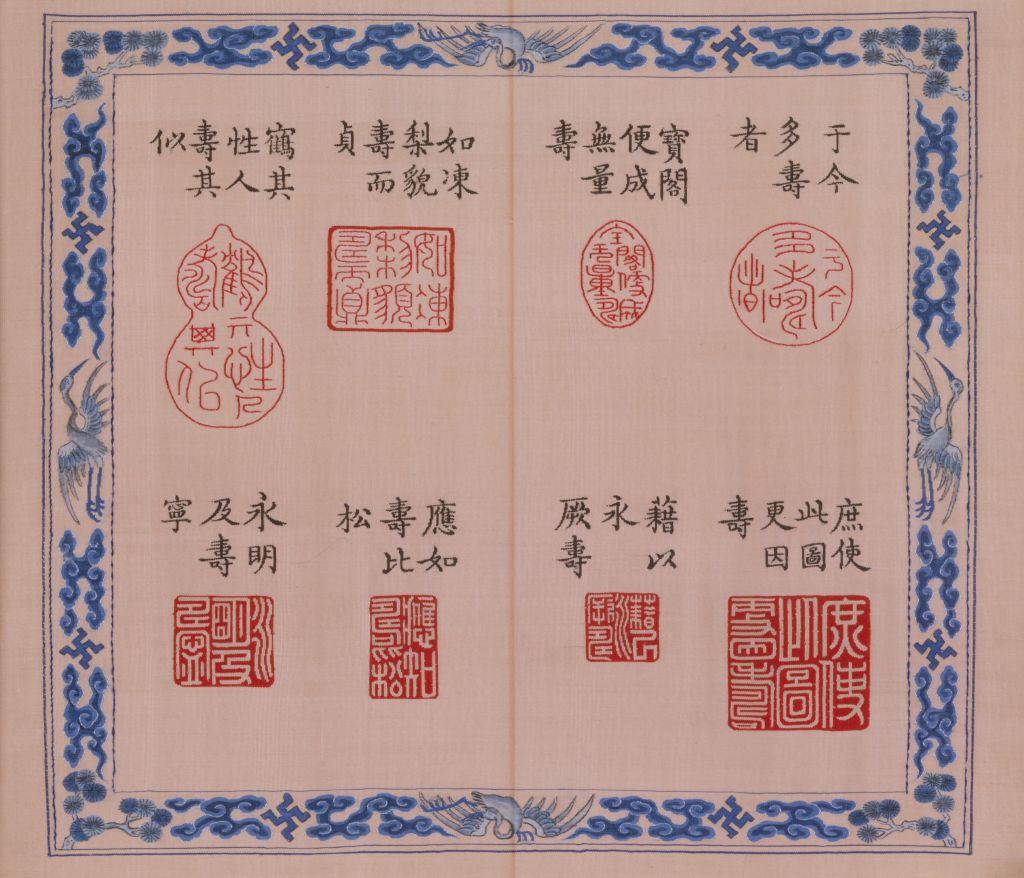 于今
多壽
者
寶閣
便成
無量
壽
如凍
梨貌
壽而
貞
鶴其
性人
壽其
似
庶使
此圖
更因
壽
藉以
永
厥壽
應如
壽比
松
永明
及壽
寧